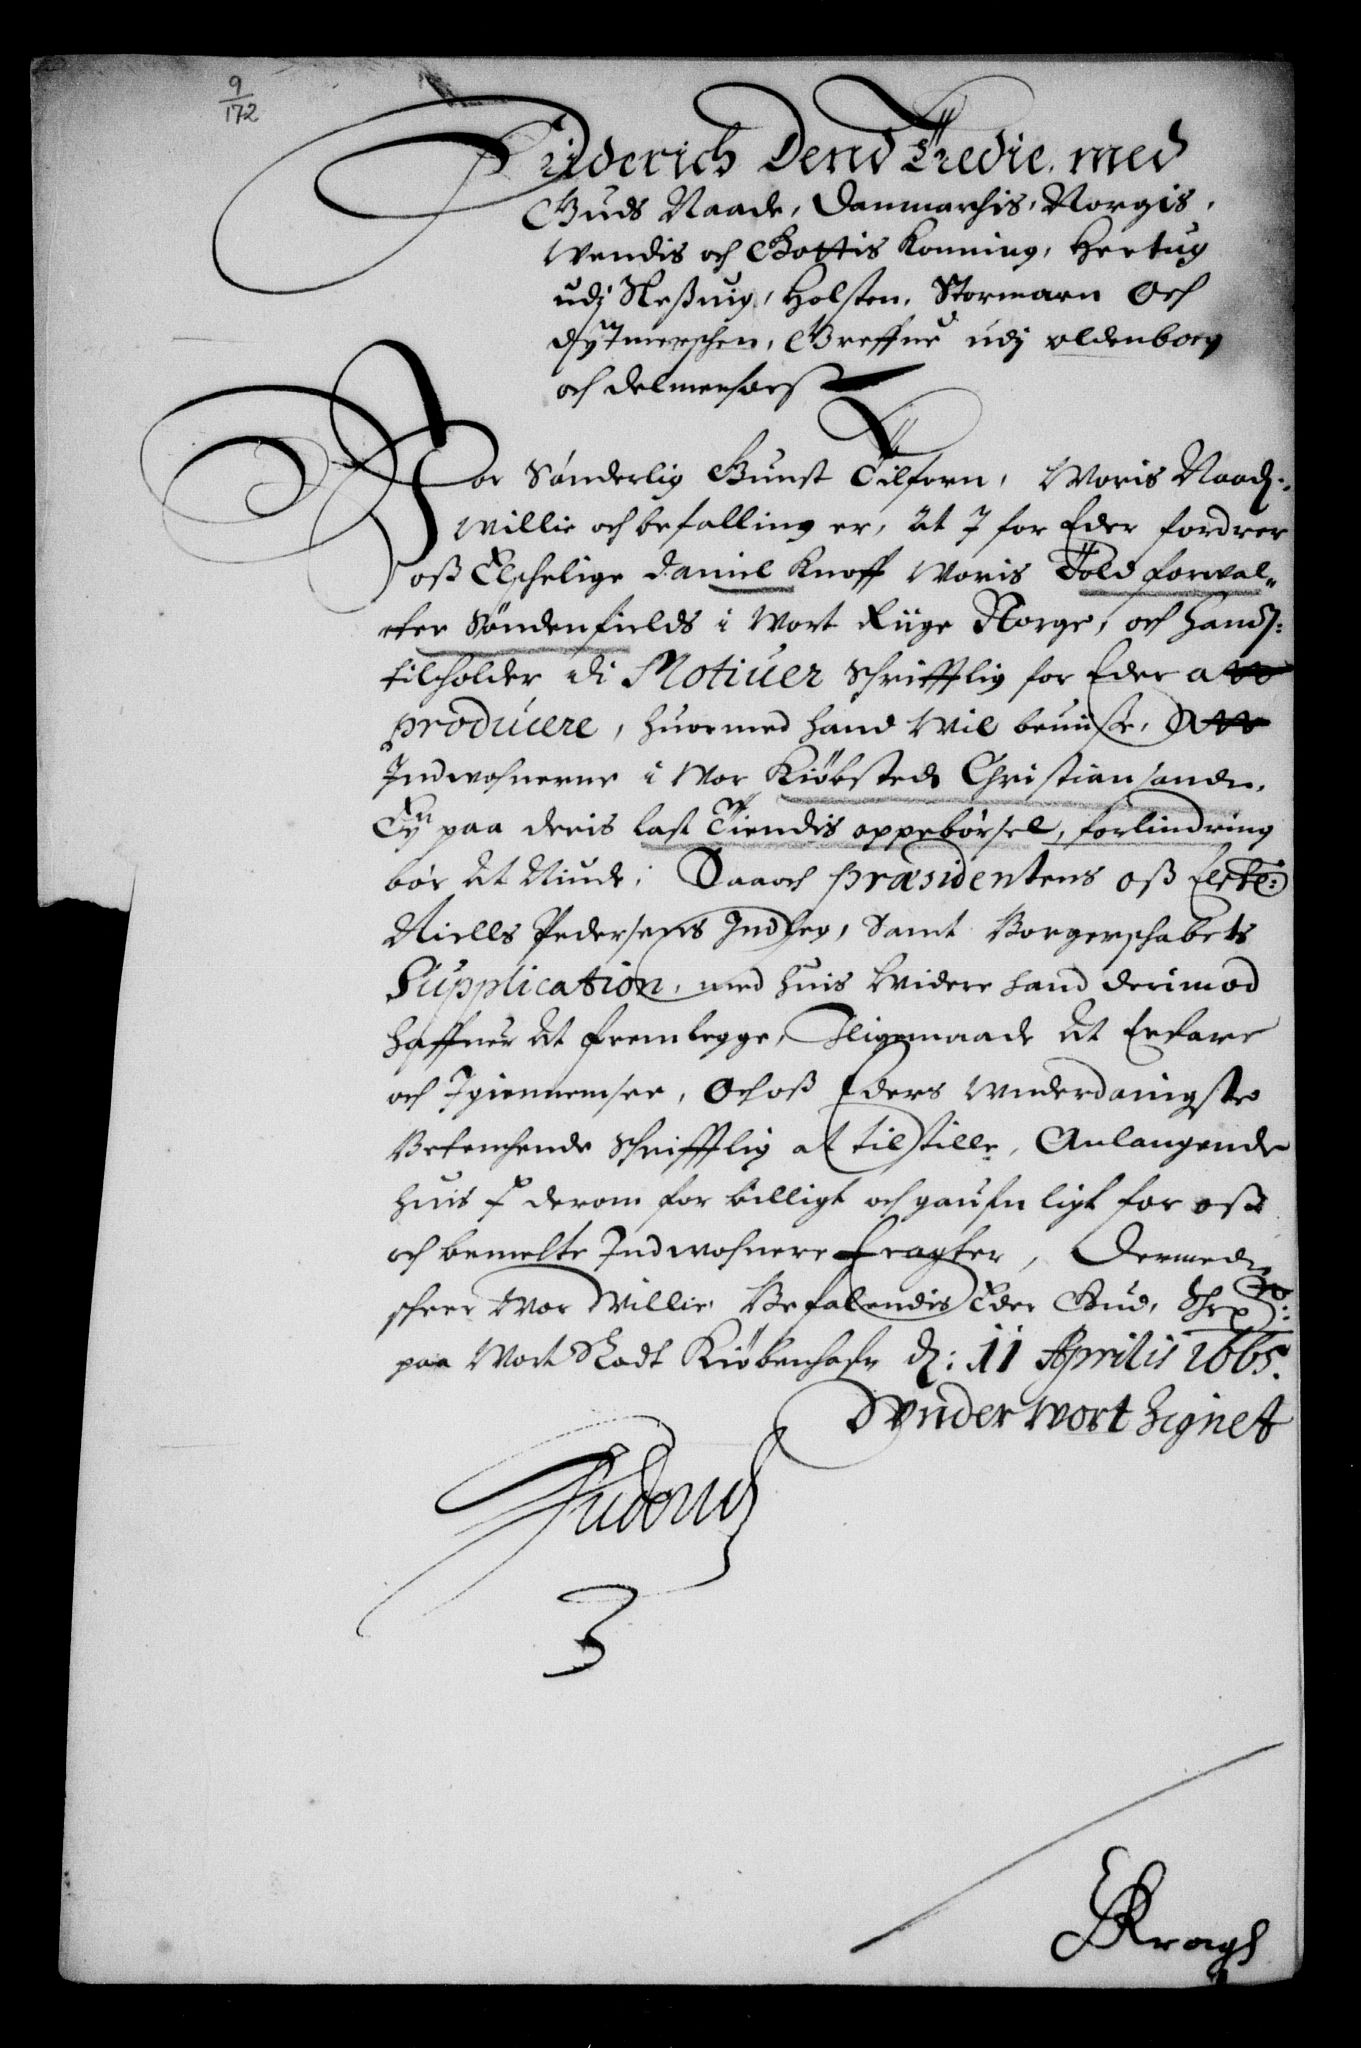 9
172
Friderich Dend Tredie, med
Guds Naade, Danmarchis, Norgis,
Wendis och Gottis Konning, Hertug
udj Slesuig, Holsten, Stormarn Och
dytmerschen, Greffue udj oldenborg
och delmenhorst
Vor Sønderlig Gunst Tilforn, Woris Naadj:
willie och befalling er, at I for Eder fordrer
oß Elschelige Daniel Knoff Woris Told forwal„
ter Søndenfields i Wort Riige Norge, och handj:
tilholder di Motiuer Schrifftlig for Eder att
producere, huormed hand Wil beuiise, att
Indwohnerne i Wor Kiøbsted Christiansande,
Ey paa deris last Tiendis oppebørsel, forlindring
bør at Niude; Saa och præsidentens oß Elskel:
Niells Pedersens Indleg, Samt Borgerschabets
Supplication, med huis Widere hand derimod
haffuer at fremlegge, Sligemaade at Erfare
och Igiennemsee, Och oß Eders Wnderdanigste
Betenchende Schrifftlig at tilstille, Anlangende
huis I derom for billigt och gaufnligt for oß
och bemelte Indwohnere Eragter, Dermed
scheer Wor Willie, Befalendis Eder Gud, Schr:
paa Wort Slodt Kiøbenhafn dj: 11 Aprilis 1665.
Wnder Wort Zignet
Friderich
3
E Kragh